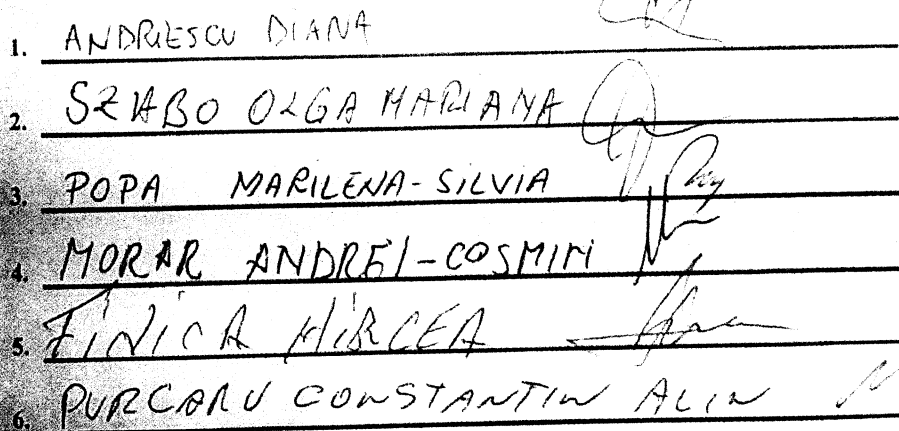 1. ANDRIESCU DIANA
2. SZABO OLGA MARIANA
3. POPA MARILENA-SILVIA
4. MORAR ANDREI-COSMIN
5. FINICA MIRCEA
6. PURCARU CONSTANTIN ALIN